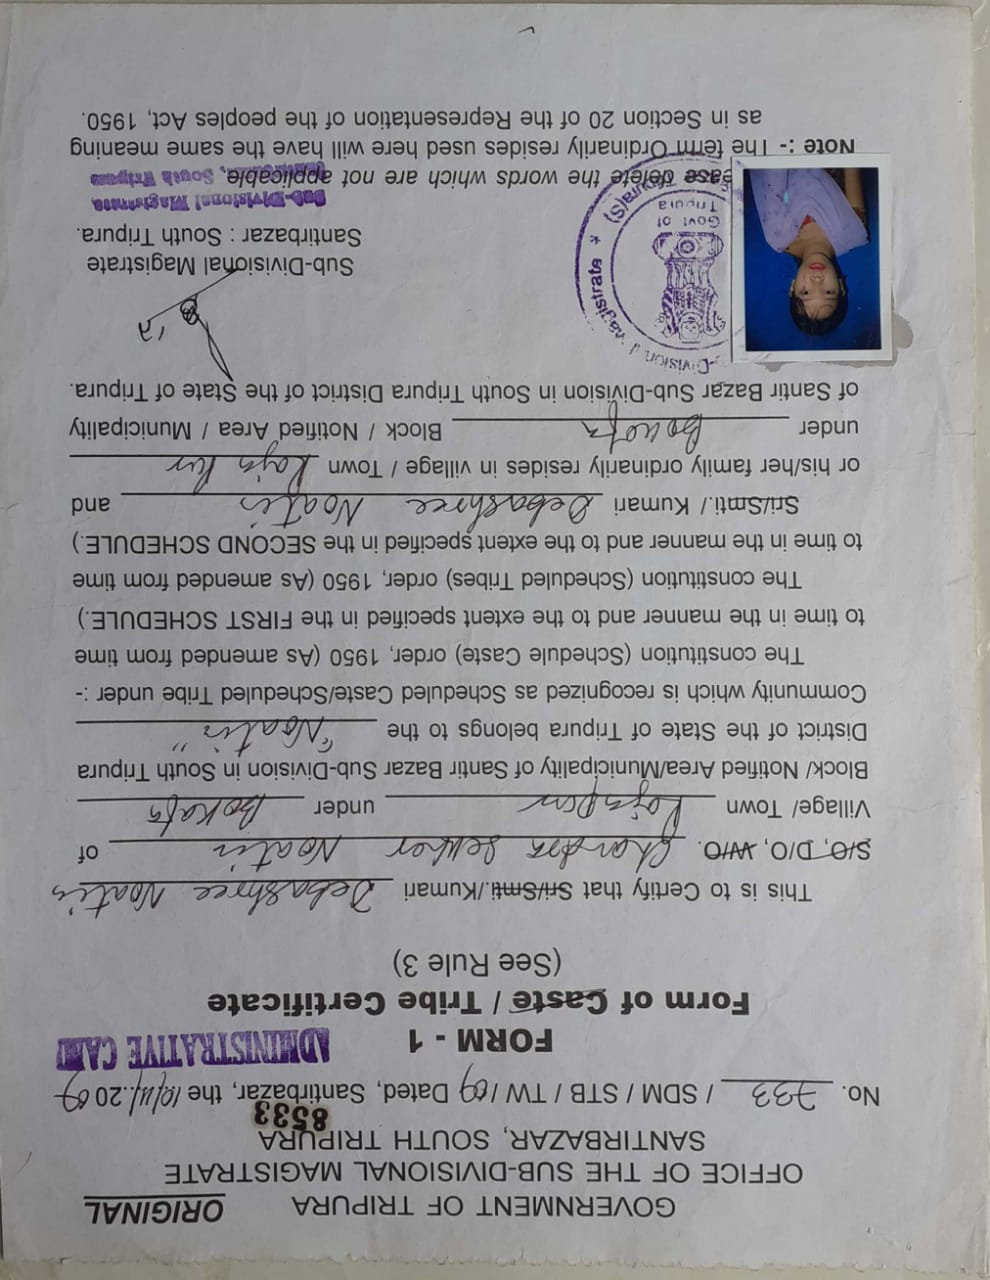 ORIGINAL
GOVERNMENT OF TRIPURA
OFFICE OF THE SUB-DIVISIONAL MAGISTRATE
SANTIRBAZAR, SOUTH TRIPURA
8533
No. 733 / SDM / STB / TW / 09 Dated, Santirbazar, the 10/11/.2009
ADMINISTRATIVE CAMP
FORM - 1
Form of Caste / Tribe Certificate
(See Rule 3)
This is to Certify that Sri/Smti./Kumari Debashree Noatia
S/O, D/O, W/O. Chandra Sekher Noatia of
Village/ Town Rajapur under Bokafa
Block/ Notified Area/Municipality of Santir Bazar Sub-Division in South Tripura
District of the State of Tripura belongs to the "Noatia"
Community which is recognized as Scheduled Caste/Scheduled Tribe under :-
The constitution (Schedule Caste) order, 1950 (As amended from time
to time in the manner and to the extent specified in the FIRST SCHEDULE.)
The constitution (Scheduled Tribes) order, 1950 (As amended from time
to time in the manner and to the extent specified in the SECOND SCHEDULE.)
Sri/Smti./ Kumari Debashree Noatia and
or his/her family ordinarily resides in village / Town Raja Pur
under Bokafa Block / Notified Area / Municipality
of Santir Bazar Sub-Division in South Tripura District of the State of Tripura.
b-Divisional Magistrate *
Govt of
Tripura
Sub-Divisional Magistrate
Santirbazar : South Tripura.
Sub-Divisional Magistrate
South Tripura
ease delete the words which are not applicable
Note :- The term Ordinarily resides used here will have the same meaning
as in Section 20 of the Representation of the peoples Act, 1950.